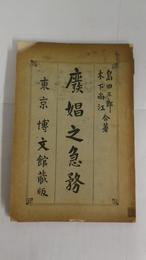 島田三郎
木下尚江 合著
廢娼之急務
東京 博文館藏版